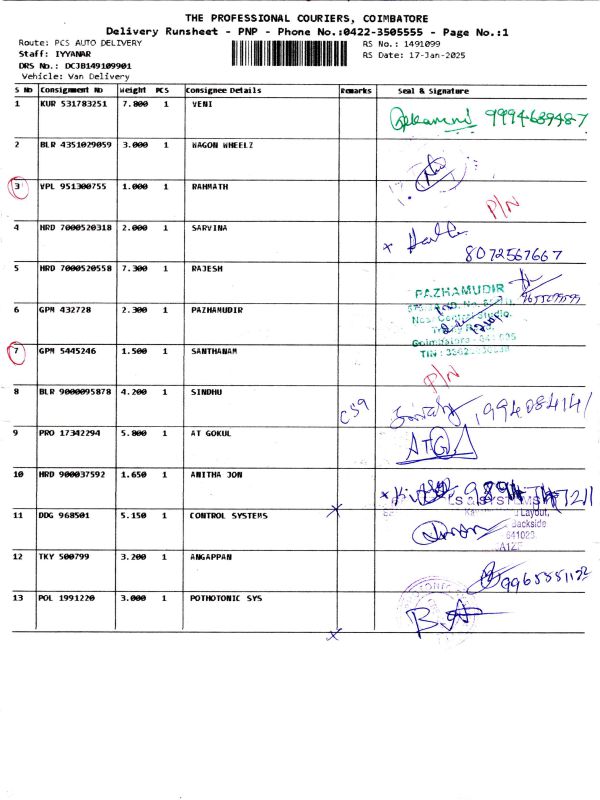 THE PROFESSIONAL COURIERS, COIMBATORE
Delivery Runsheet - PNP - Phone No.:0422-3505555 - Page No.:1
Route: PCS AUTO DELIVERY
RS No.: 1491099
Staff: IYYANAR
RS Date: 17-Jan-2025
DRS No.: DCJB149109901
Vehicle: Van Delivery
S No Consignment No Weight PCS Consignee Details Remarks Seal & Signature
1 KUR 531783251 7.800 1 VENI 9994689487
2 BLR 4351029059 3.000 1 WAGON WHEELZ
3 VPL 951300755 1.000 1 RAHMATH P/N
4 HRD 7000520318 2.000 1 SARVINA x
8072567667
5 HRD 7000520558 7.300 1 RAJESH
PAZHAMUDIR
6 GPM 432728 2.300 1 PAZHAMUDIR
7 GPM 5445246 1.500 1 SANTHANAM P/N
8 BLR 9000095878 4.200 1 SINDHU
9 PRO 17342294 5.800 1 AT GOKUL
10 HRD 900037592 1.650 1 ANITHA JON
11 DDG 968501 5.150 1 CONTROL SYSTEMS x
Layout,
Backside
641023
12 TKY 500799 3.200 1 ANGAPPAN
13 POL 1991220 3.000 1 POTHOTONIC SYS
x